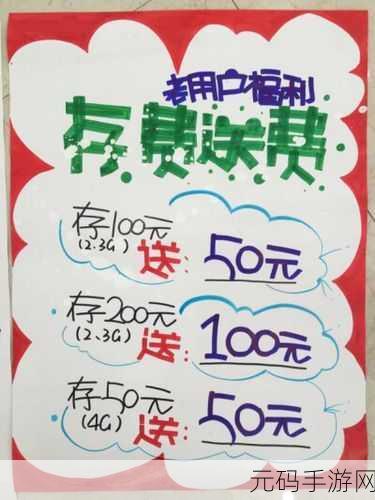 老用户福利
存费送费
存100元
(2.3G) 送: 50元
存200元
(2.3G) 送: 100元
存50元
(4G) 送: 50元
元码手游网